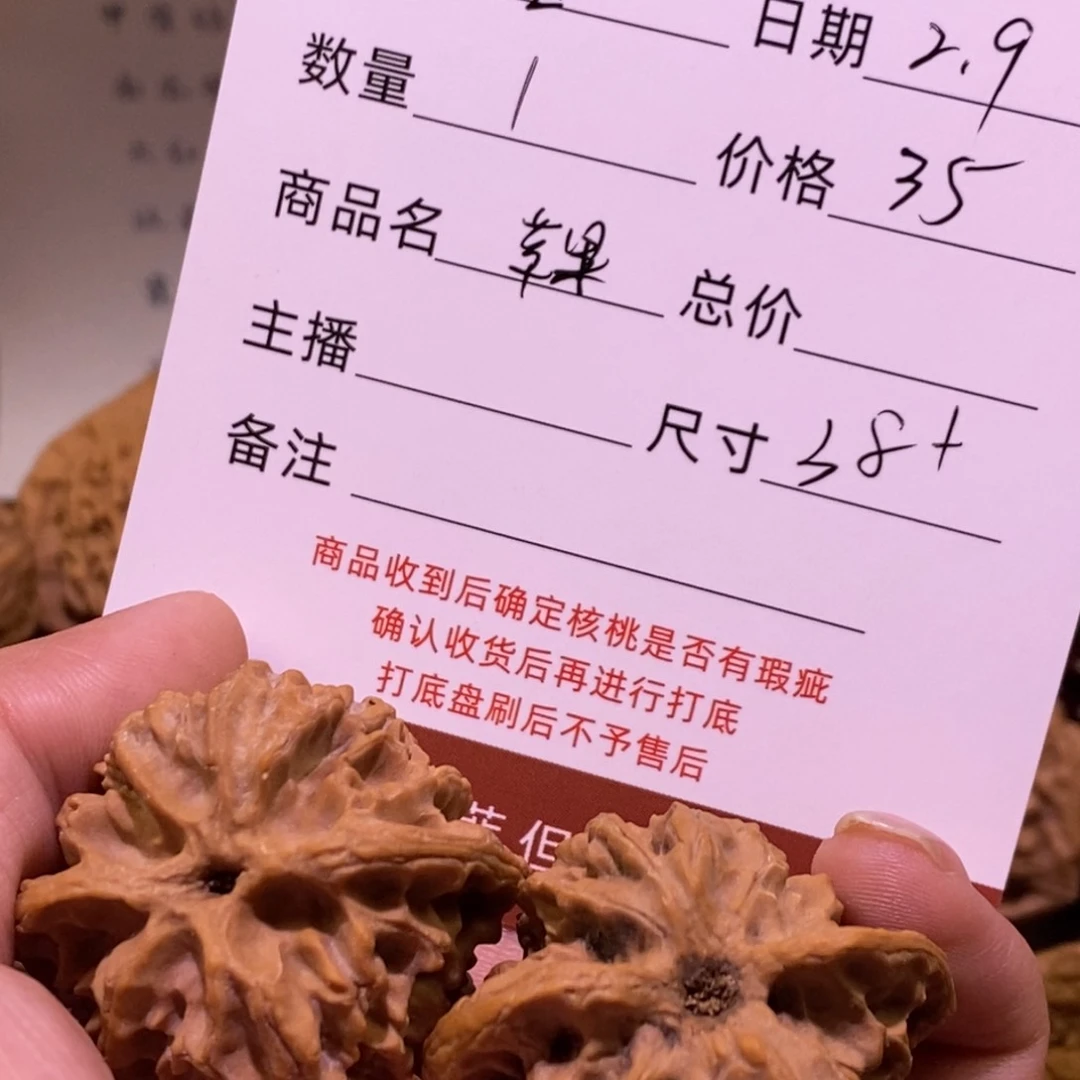 日期 2.9
数量 1 价格 35
商品名 苹果 总价
主播 尺寸 38+
备注
商品收到后确定核桃是否有瑕疵
确认收货后再进行打底
打底盘刷后不予售后
但